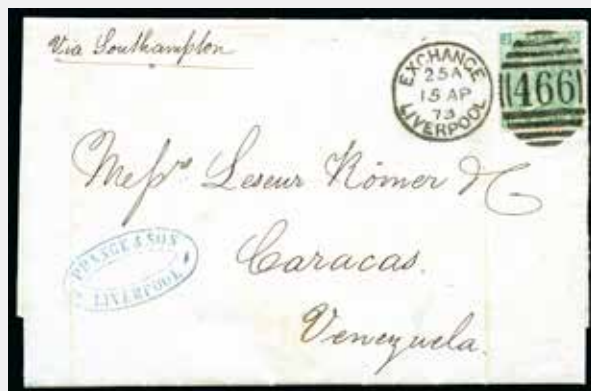 Via Southampton
EXCHANGE
25A
15 AP
73
LIVERPOOL
466
Mesrs Leseur Römer & C
Caracas.
Venezuela.
PRANGE & SON
LIVERPOOL